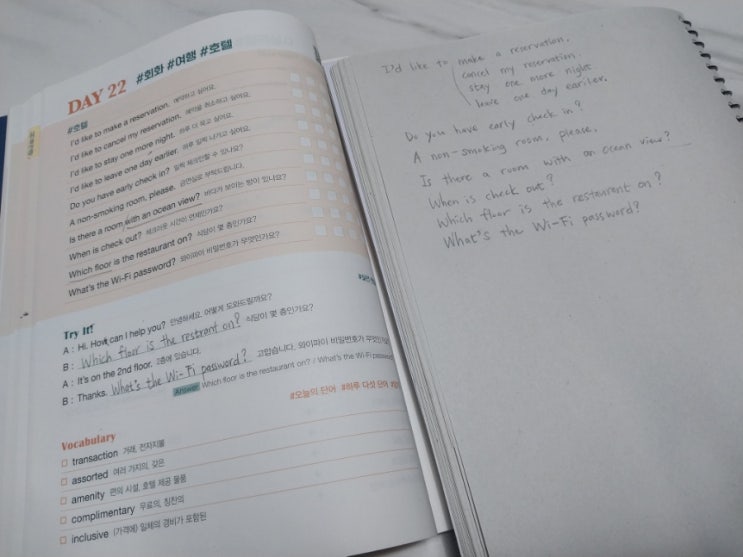 DAY 22 #회화 #여행 #호텔
#호텔
I'd like to make a reservation. 예약하고 싶어요.
I'd like to cancel my reservation. 예약을 취소하고 싶어요.
I'd like to stay one more night. 하루 더 묵고 싶어요.
I'd like to leave one day earlier. 하루 일찍 나가고 싶어요.
Do you have early check in? 일찍 체크인할 수 있나요?
A non-smoking room, please. 금연실로 부탁드립니다.
Is there a room with an ocean view? 바다가 보이는 방이 있나요?
When is check out? 체크아웃 시간이 언제인가요?
Which floor is the restaurant on? 식당이 몇 층인가요?
What's the Wi-Fi password? 와이파이 비밀번호가 무엇인가요?
Try It!
A : Hi. How can I help you? 안녕하세요. 어떻게 도와드릴까요?
B : Which floor is the restrant on? 식당이 몇 층인가요?
A : It's on the 2nd floor. 2층에 있습니다.
B : Thanks. What's the Wi-Fi password? 고맙습니다. 와이파이 비밀번호가 무엇인가
Answer Which floor is the restaurant on? / What's the Wi-Fi passwor
#오늘의 단어 #하루 다섯 단어
Vocabulary
transaction 거래, 전자지불
assorted 여러 가지의, 갖은
amenity 편의 시설, 호텔 제공 물품
complimentary 무료의, 칭찬의
inclusive (가격에) 일체의 경비가 포함된
I'd like to make a reservation.
cancel my reservation.
stay one more night
leave one day eariler.
Do you have early check in?
A non-smoking room, please.
Is there a room with an ocean view?
When is check out?
Which floor is the restaurant on?
What's the Wi-Fi password?